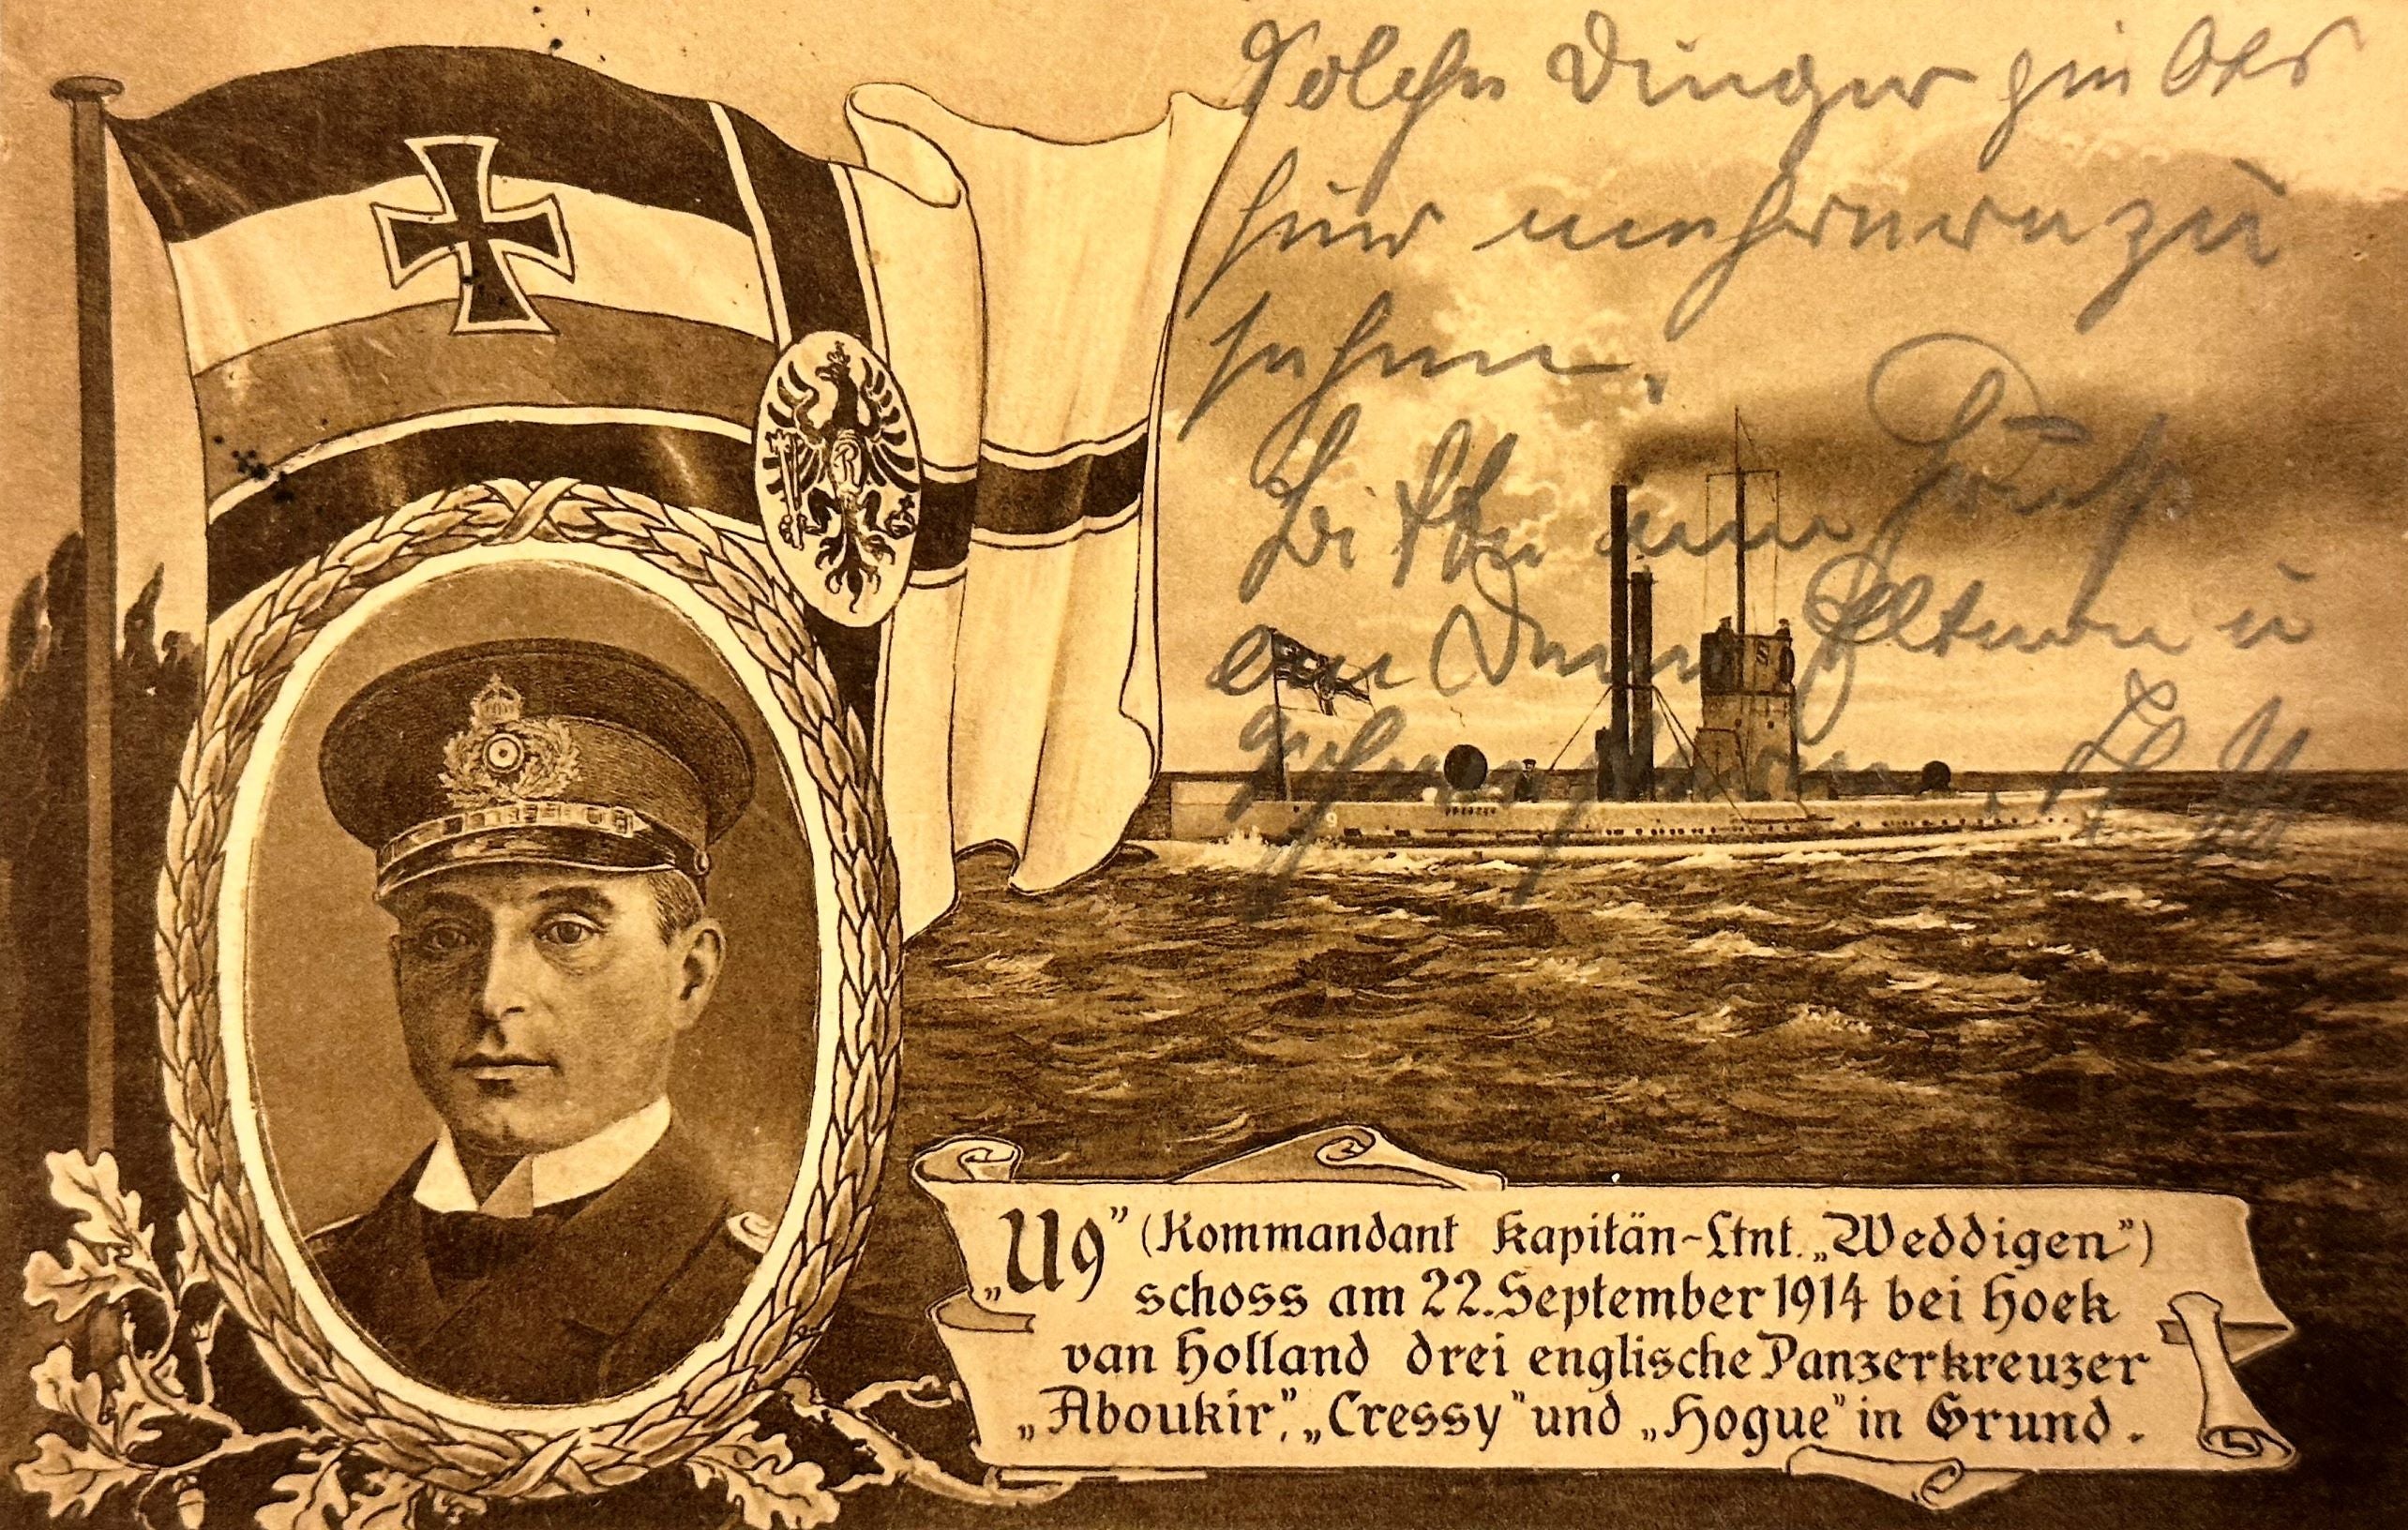 Solche Dinger
hier mehrere zu
sehen.
Bitte einen Gruß
an Deine Eltern u
Geschwister.
„U9” (Kommandant Kapitän-Ltnt. „Weddigen”)
schoss am 22. September 1914 bei Hoek
van Holland drei englische Panzerkreuzer
„Aboukir”, „Cressy” und „Hogue” in Grund.